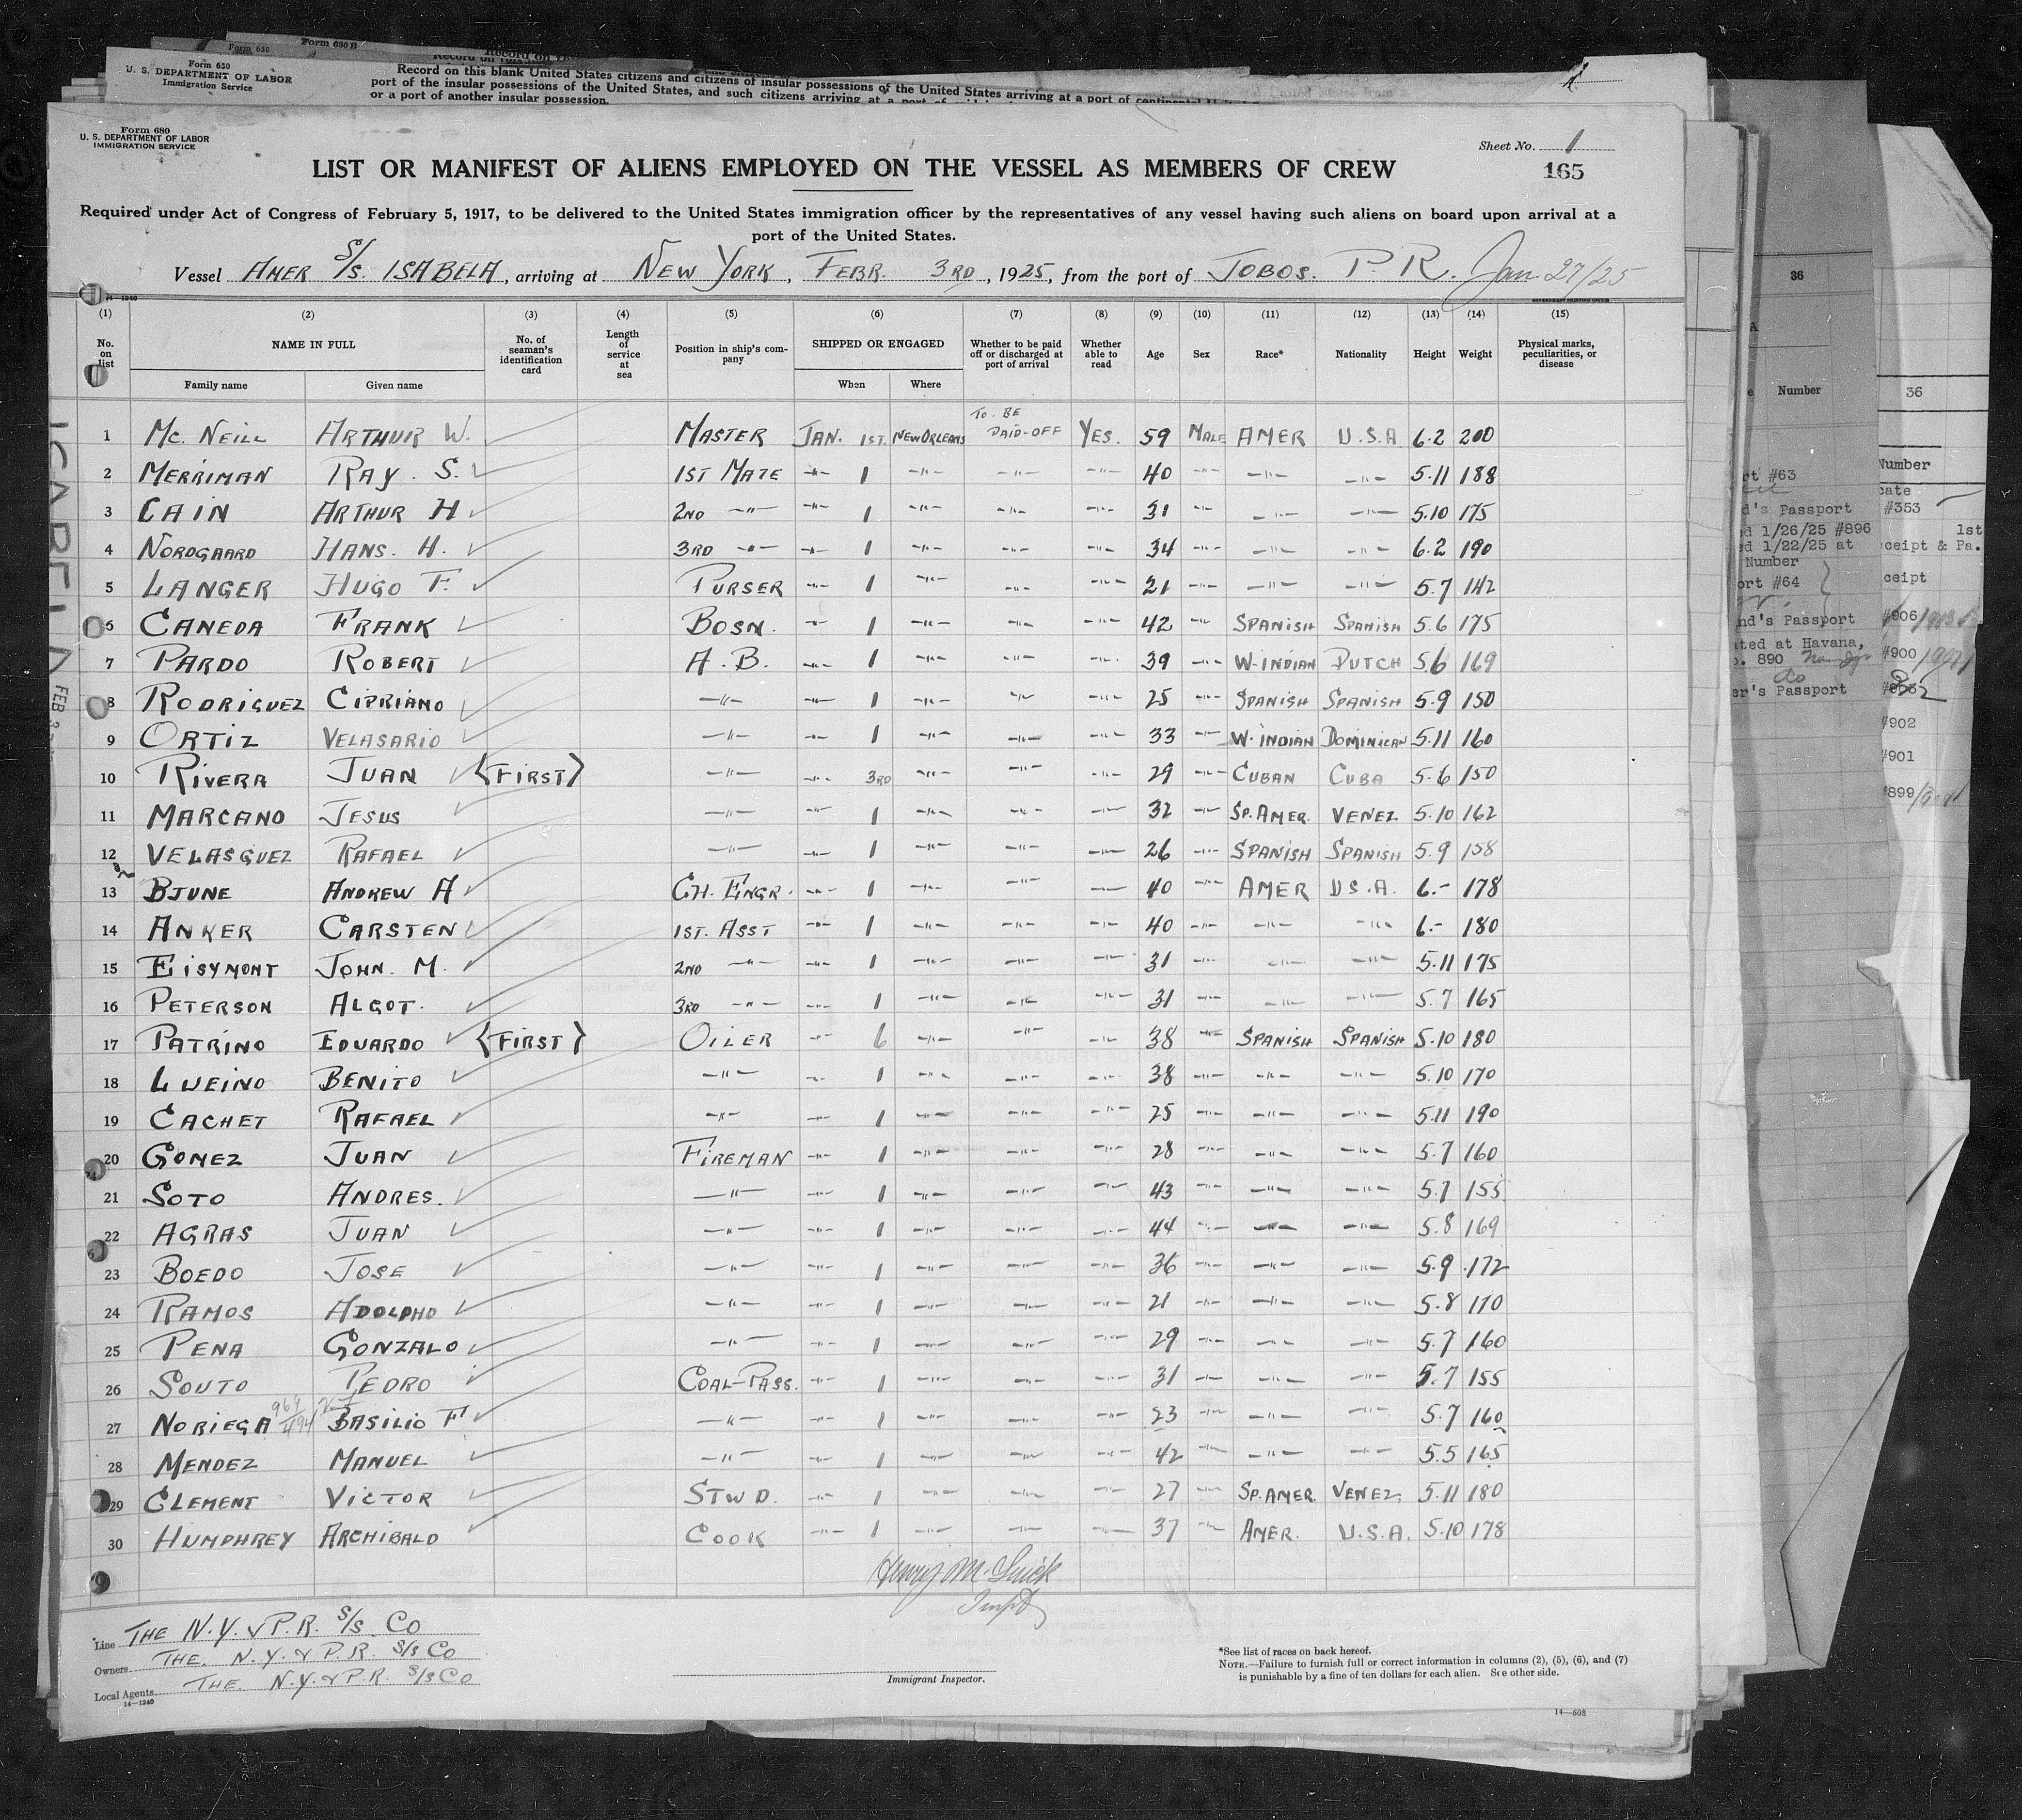 Form 630
U. S. DEPARTMENT OF LABOR
Immigration Service
Form 630
Form 630 B
Record on this blank United States citizens and citizens of insular possessions of the United States arriving at a port of continental
port of the insular possessions of the United States, and such citizens arriving at a port of
or a port of another insular possession.
Form 680
U. S. DEPARTMENT OF LABOR
IMMIGRATION SERVICE
Sheet No. 1
165
LIST OR MANIFEST OF ALIENS EMPLOYED ON THE VESSEL AS MEMBERS OF CREW
Required under Act of Congress of February 5, 1917, to be delivered to the United States immigration officer by the representatives of any vessel having such aliens on board upon arrival at a
port of the United States.
Vessel AMER S/S. ISABELA, arriving at NEW YORK, FEBR. 3RD, 1925, from the port of JOBOS. P. R. Jan 27/25
14-1240
(1) (2) (3) (4) (5) (6) (7) (8) (9) (10) (11) (12) (13) (14) (15)
No. on list NAME IN FULL Family name Given name No. of seaman's identification card Length of service at sea Position in ship's company SHIPPED OR ENGAGED When Where Whether to be paid off or discharged at port of arrival Whether able to read Age Sex Race* Nationality Height Weight Physical marks, peculiarities, or disease
1 Mc. NEILL ARTHUR W. MASTER JAN. 1ST. NEW ORLEANS TO. BE PAID-OFF YES. 59 MALE AMER U.S.A 6.2 200
2 MERRIMAN RAY. S. 1ST MATE -"- 1 -"- -"- -"- 40 -"- -"- -"- 5.11 188
3 CAIN ARTHUR H 2ND -"- -"- 1 -"- -"- -"- 31 -"- -"- -"- 5.10 175
4 NORDGAARD HANS. H. 3RD -"- -"- 1 -"- -"- -"- 34 -"- -"- -"- 6.2 190
5 LANGER HUGO F. PURSER -"- 1 -"- -"- -"- 21 -"- -"- -"- 5.7 142
6 CANEDA FRANK BOSN. -"- 1 -"- -"- -"- 42 -"- SPANISH SPANISH 5.6 175
7 PARDO ROBERT A. B. -"- 1 -"- -"- -"- 39 -"- W-INDIAN DUTCH 5.6 169
8 RODRIGUEZ CIPRIANO -"- -"- 1 -"- -"- -"- 25 -"- SPANISH SPANISH 5.9 150
9 ORTIZ VELASARIO -"- -"- 1 -"- -"- -"- 33 -"- W. INDIAN DOMINICAN 5.11 160
10 RIVERA JUAN {FIRST} -"- -"- 3RD -"- -"- -"- 29 -"- CUBAN CUBA 5.6 150
11 MARCANO JESUS -"- -"- 1 -"- -"- -"- 32 -"- SP. AMER. VENEZ 5.10 162
12 VELASGUEZ RAFAEL -"- -"- 1 -"- -"- -"- 26 -"- SPANISH SPANISH 5.9 158
13 BJUNE ANDREW A CH. ENGR. -"- 1 -"- -"- -"- 40 -"- AMER U.S.A. 6.- 178
14 ANKER CARSTEN 1ST. ASST -"- 1 -"- -"- -"- 40 -"- -"- -"- 6.- 180
15 EISYMONT JOHN. M. 2ND -"- -"- 1 -"- -"- -"- 31 -"- -"- -"- 5.11 175
16 PETERSON ALGOT. 3RD -"- -"- 1 -"- -"- -"- 31 -"- -"- -"- 5.7 165
17 PATRINO EDUARDO {FIRST} OILER -"- 6 -"- -"- -"- 38 -"- SPANISH SPANISH 5.10 180
18 LUEINO BENITO -"- -"- 1 -"- -"- -"- 38 -"- -"- -"- 5.10 170
19 CACHET RAFAEL -"- -"- 1 -"- -"- -"- 25 -"- -"- -"- 5.11 190
20 GOMEZ JUAN FIREMAN -"- 1 -"- -"- -"- 28 -"- -"- -"- 5.7 160
21 SOTO ANDRES. -"- -"- 1 -"- -"- -"- 43 -"- -"- -"- 5.7 155
22 AGRAS JUAN -"- -"- 1 -"- -"- -"- 44 -"- -"- -"- 5.8 169
23 BOEDO JOSE -"- -"- 1 -"- -"- -"- 36 -"- -"- -"- 5.9 172
24 RAMOS ADOLPHO -"- -"- 1 -"- -"- -"- 21 -"- -"- -"- 5.8 170
25 PENA GONZALO -"- -"- 1 -"- -"- -"- 29 -"- -"- -"- 5.7 160
26 SOUTO PEDRO COAL-PASS. -"- 1 -"- -"- -"- 31 -"- -"- -"- 5.7 155
27 NORIEGA BASILIO F -"- -"- 1 -"- -"- -"- 23 -"- -"- -"- 5.7 160
28 MENDEZ MANUEL -"- -"- 1 -"- -"- -"- 42 -"- -"- -"- 5.5 165
29 CLEMENT VICTOR STWD. -"- 1 -"- -"- -"- 27 -"- SP. AMER. VENEZ. 5.11 180
30 HUMPHREY ARCHIBALD COOK -"- 1 -"- -"- -"- 37 -"- AMER. U.S.A. 5.10 178
Line THE N.Y. & P.R. S/S. CO
Owners THE. N.Y. & P.R. S/S CO
Local Agents THE. N.Y. & P.R S/S CO
14-1240
Immigrant Inspector.
*See list of races on back hereof.
NOTE.—Failure to furnish full or correct information in columns (2), (5), (6), and (7)
is punishable by a fine of ten dollars for each alien. See other side.
14-608
36
Number
#63
d's Passport
1/26/25 #896
1/22/25 at
Number
#64
nd's Passport
at Havana,
890
er's Passport
36
Number
#353
1st
ceipt & Pa.
ceipt
#906
#900
#902
#901
#899